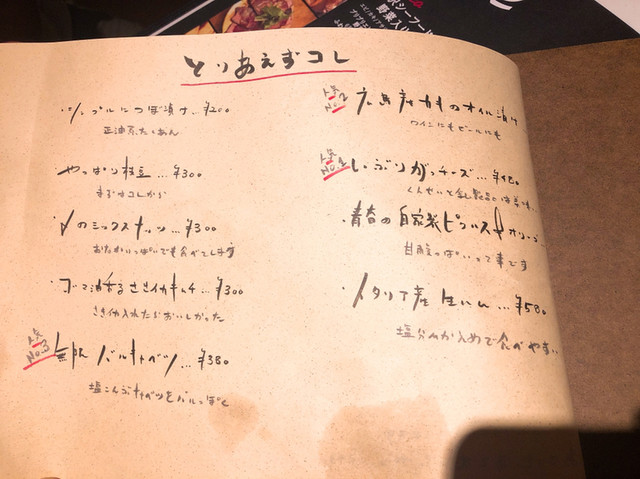 シーフード
野菜入り
とりあえずコレ
シンプルにつぼ漬け…¥200
正油系たくあん
やっぱり枝豆…¥300
まずはコレから
のミックスナッツ…¥300
おなかいっぱいでも食べてしまいます
ゴマ油香るさきイカキムチ…¥300
さきイカ入れたらおいしかった
人気No.3 無限バルキャベツ…¥380
塩こんぶキャベツをバルっぽく
人気No.2 広島産カキのオイル漬け
ワインにもビールにも
人気No.1 いぶりがっチーズ…
くんせいと乳製品は
青春の自家製ピクルス&オリーブ
甘酸っぱいって事です
イタリア産生ハム…¥580
塩分ひかえめで食べやすい